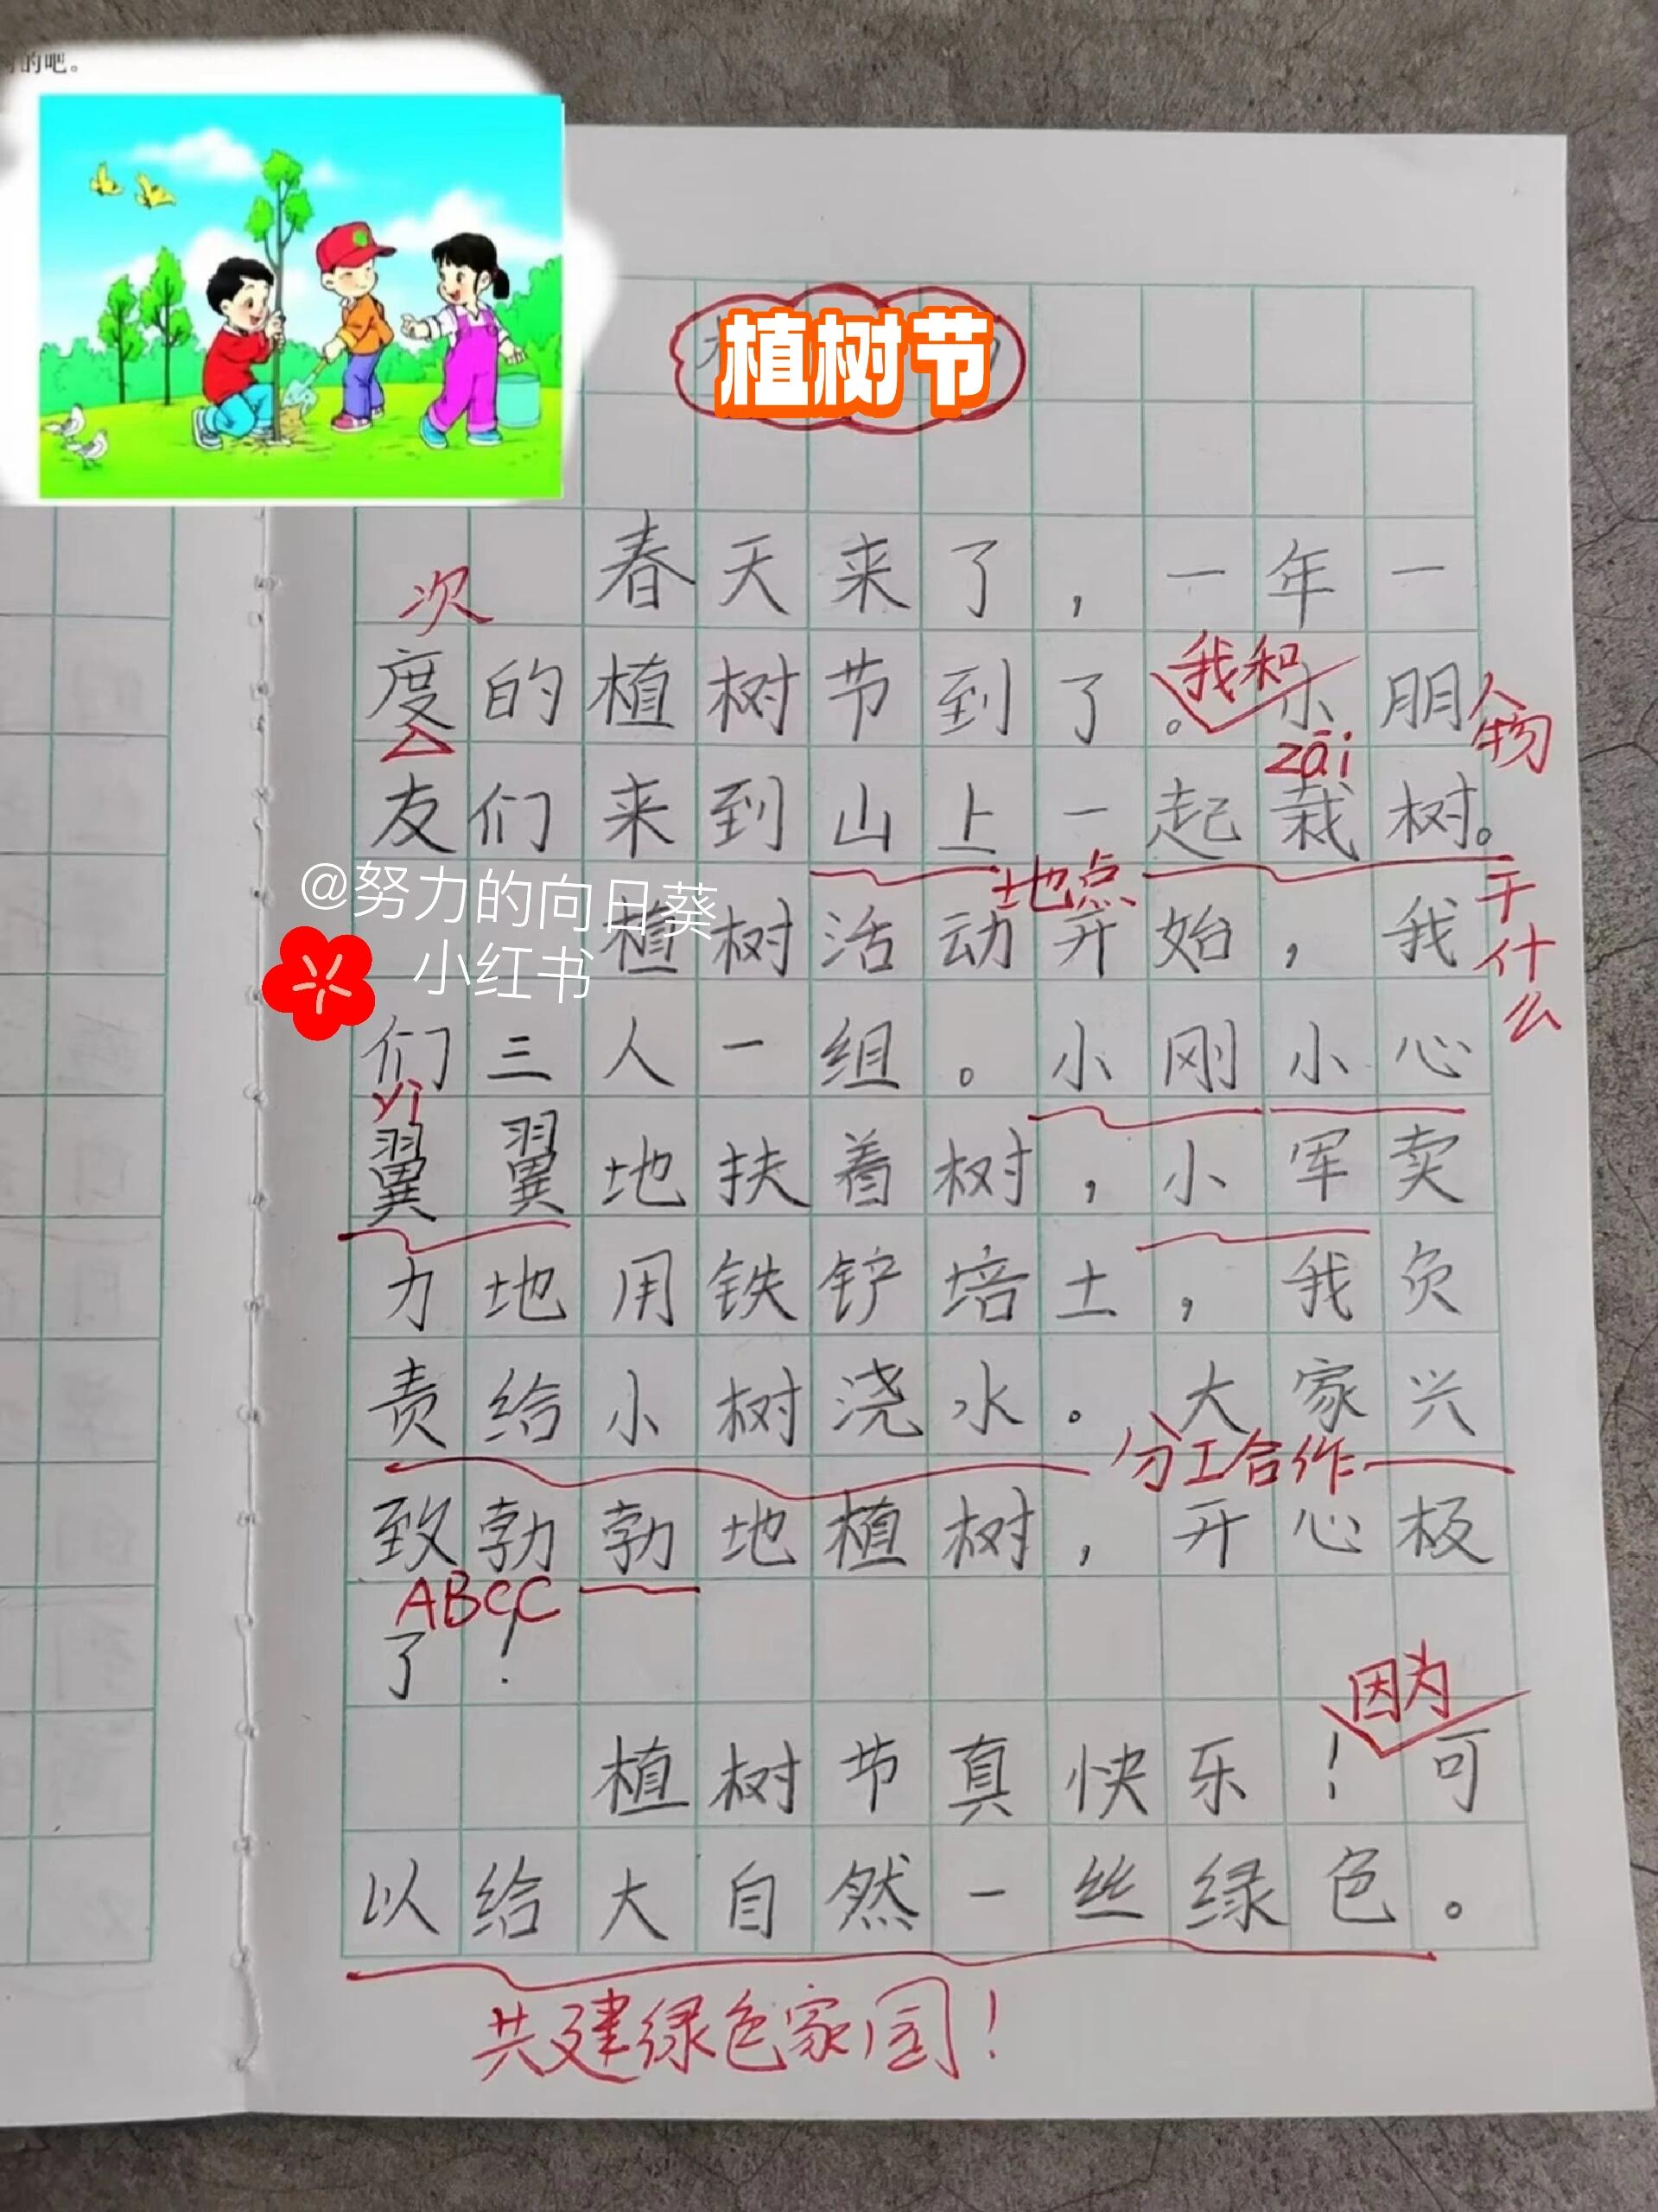 的吧。
植树节
春天来了，一年一
次
度的植树节到了。小朋
我和
人物
zāi
友们来到山上一起栽树。
地点
干什么
@努力的向日葵
小红书
植树活动开始，我
们三人一组。小刚小心
yì
翼翼地扶着树，小军卖
力地用铁铲培土，我负
责给小树浇水。大家兴
分工合作
致勃勃地植树，开心极
ABCC
了！
因为
植树节真快乐！可
以给大自然一丝绿色。
共建绿色家园！